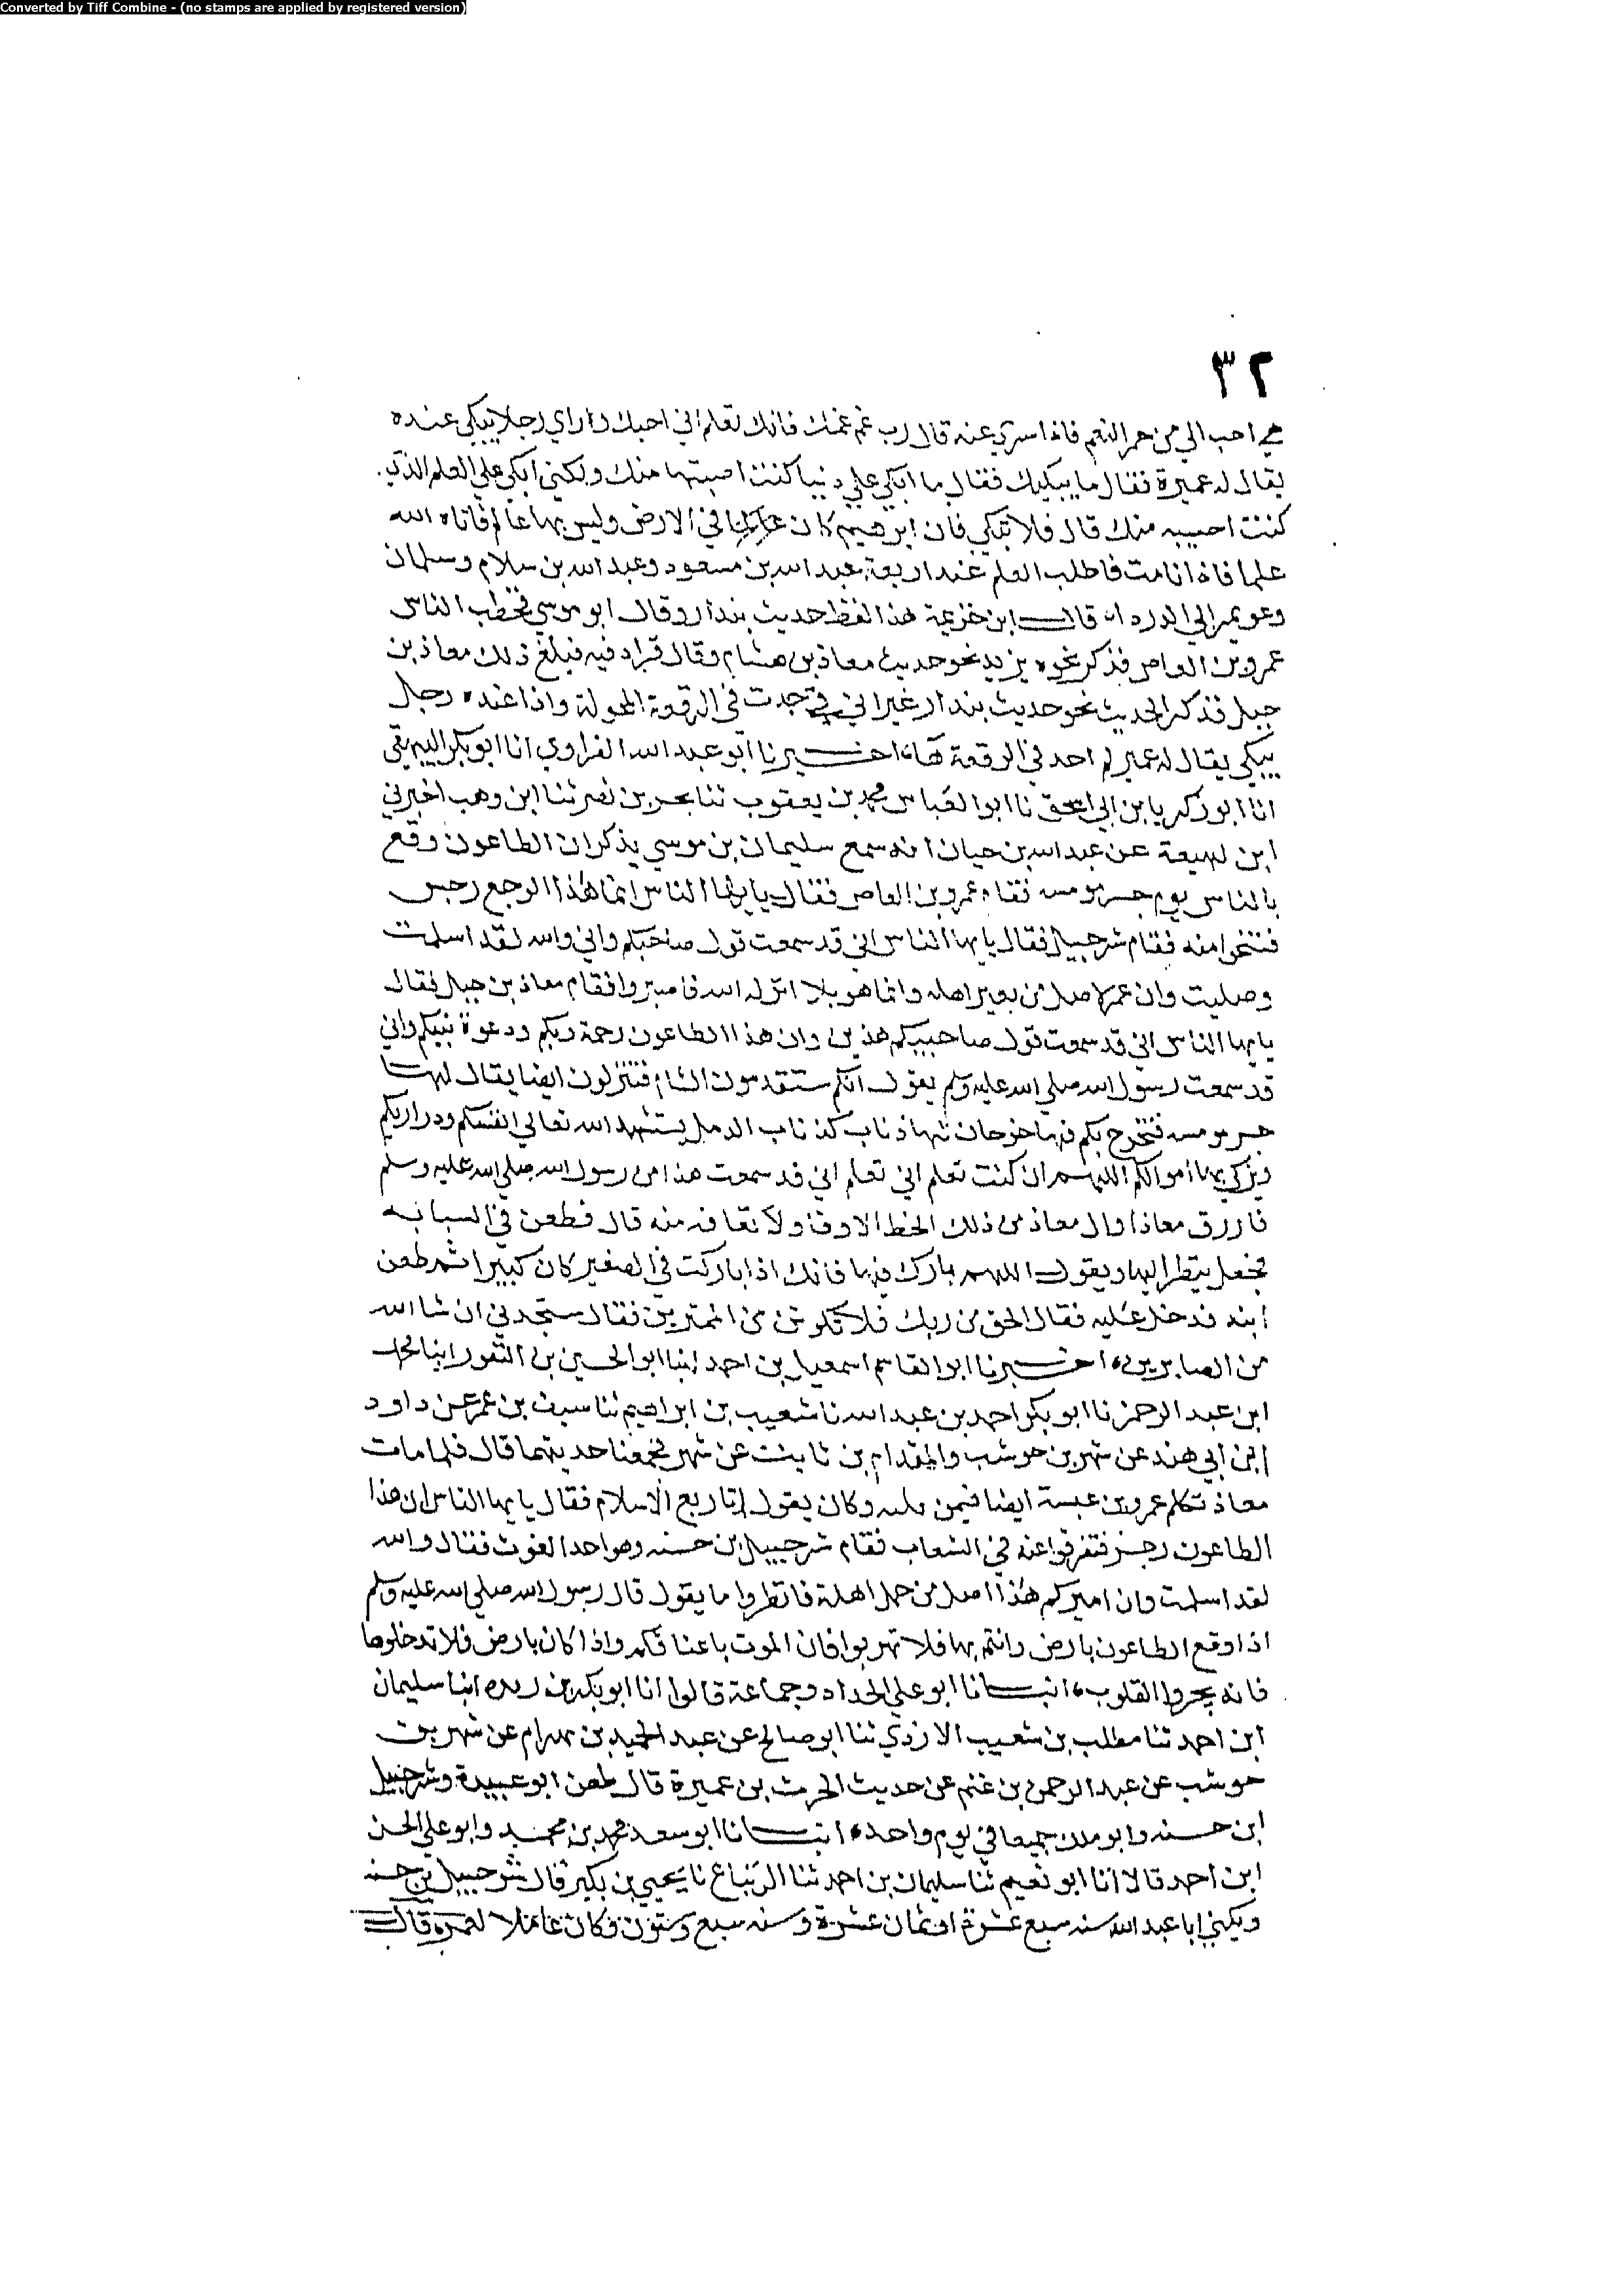 Converted by Tiff Combine - (no stamps are applied by registered version)
٣٢
هي احب الي من حمر النعم فاذا سري عنه قال رب غم غمك فانك تعلم اني احبك وراي رجلا يبكي عنده
يقال له عميرة فقال ما يبكيك فقال ما ابكي علي دنيا كنت اصبتها منك ولكني ابكي علي العلم الذي
كنت احبيبه منك قال فلا تبكي فان ابرهيم كان في الارض وليس بها عالم فاتاه الله
علما فاذا انا مت فاطلب العلم عند اربعة عبد الله بن مسعود وعبد الله بن سلام وسلمان
وعويمر ابي الدردا قال ابن خزيمة هذا لفظ حديث بندار وقال ابو موسي فخطب الناس
عمرو بن العاص فذكر نحوه يزيد نحو حديث معاذ بن هشام وقال فزاد فيه فبلغ ذلك معاذ بن
جبل فذكر الحديث نحو حديث بندار غير اني وجدت في الرقعة المحولة واذا عنده رجل
يبكي يقال له عمير لم احد في الرقعة ها، اخبرنا ابو عبد الله الفراوي انا ابو بكر البيهقي
انا ابو زكريا بن ابي اسحق نا ابو العباس محمد بن يعقوب ثنا بحر بن نصر ثنا ابن وهب اخبرني
ابن لهيعة عن عبد الله بن حيان انه سمع سليمان بن موسي يذكر ان الطاعون وقع
بالناس يوم جسر موسه فقام عمرو بن العاص فقال يايها الناس انما هذا الوجع رجس
فتنحوا منه فقام شرحبيل فقال يايها الناس اني قد سمعت قول صاحبكم واني والله لقد اسلمت
وصليت وان عمرا لاضل من بعير اهله وانما هو بلا انزله الله فاصبروا فقام معاذ بن جبل فقال
يايها الناس اني قد سمعت قول صاحبيكم هذين وان هذا الطاعون رحمة ربكم ودعوة نبيكم واني
قد سمعت رسول الله صلي الله عليه وسلم يقول انكم ستقدمون الشام فتنزلون ارضا يقال لها
جسر موسه فتخرج بكم فيها خرجان لها ذناب كذناب الدمل يستشهد الله تعالي انفسكم وذراريكم
ويزكي بها اموالكم اللهم ان كنت تعلم اني تعلم اني قد سمعت هذا من رسول الله صلي الله عليه وسلم
فارزق معاذا وال معاذ من ذلك الحظ الاوفا ولا تعافه منه قال فطعن في السبابه
فجعل ينظر اليها ويقول اللهم بارك فيها فانك اذا باركت في الصغير كان كبيرا ثم طعن
ابنه فدخل عليه فقال الحق من ربك فلا تكونن من الممترين فقال ستجدني ان شا الله
من الصابرين، اخبرنا ابو القاسم اسمعيل بن احمد انبا ابو الحسين بن النقور انبا محمد
ابن عبد الرحمن نا ابو بكر احمد بن عبد الله نا شعيب بن ابراهيم ثنا سيف بن عمر عن داود
ابن ابي هند عن شهر بن حوشب والمقدام بن ثابت عن شهر فجمعنا حديثهما قال فلما مات
معاذ تكلم عمرو بن عبسة ايضا فيمن يليه وكان يقول انا ربع الاسلام فقال يايها الناس ان هذا
الطاعون رجز فتفرقوا عنه في الشعاب فقام شرحبيل بن حسنه وهو احد الغوث فقال والله
لقد اسلمت وان اميركم هذا اضل من جمل اهله فانظروا ما يقول قال رسول الله صلي الله عليه وسلم
اذا وقع الطاعون بارض وانتم بها فلا تهربوا فان الموت باعناقكم واذا كان بارض فلا تدخلوها
فانه يحرق القلوب، انبانا ابو علي الحداد وجماعة قالوا انا ابو بكر بن ريذه انبا سليمان
ابن احمد ثنا مطلب بن شعيب الازدي ثنا ابو صالح عن عبد الحميد بن بهرام عن شهر بن
حوشب عن عبد الرحمن بن غنم عن حديث الحرث بن عميرة قال طعن ابو عبيدة وشرحبيل
ابن حسنه وابو ملك جميعا في يوم واحد، انبانا ابو سعد محمد بن محمد وابو علي الحسن
ابن احمد قالا انا ابو نعيم ثنا سليمان بن احمد ثنا الزنباع نا يحيي بن بكير قال شرحبيل بن حسنه
ويكني ابا عبد الله سنه سبع عشرة او ثمان عشرة وسنه سبع وستون وكان عاملا لعمر، قال